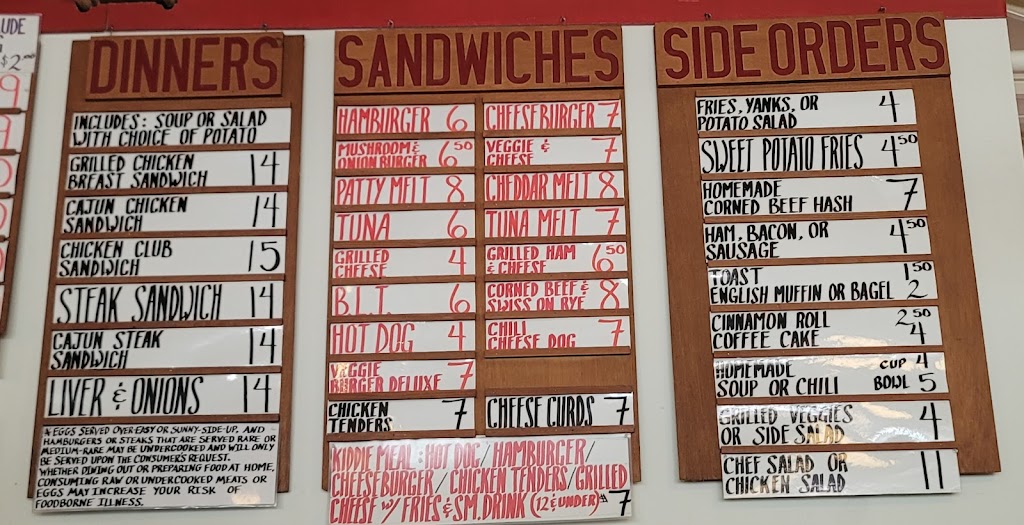 LUDE
$2.00
9
9
0
0
0
DINNERS
INCLUDES: SOUP OR SALAD
WITH CHOICE OF POTATO
GRILLED CHICKEN
BREAST SANDWICH 14
CAJUN CHICKEN
SANDWICH 14
CHICKEN CLUB
SANDWICH 15
STEAK SANDWICH 14
CAJUN STEAK
SANDWICH 14
LIVER & ONIONS 14
* EGGS SERVED OVER-EASY OR SUNNY-SIDE-UP, AND
HAMBURGERS OR STEAKS THAT ARE SERVED RARE OR
MEDIUM-RARE MAY BE UNDERCOOKED AND WILL ONLY
BE SERVED UPON THE CONSUMERS REQUEST.
WHETHER DINING OUT OR PREPARING FOOD AT HOME,
CONSUMING RAW OR UNDERCOOKED MEATS OR
EGGS MAY INCREASE YOUR RISK OF
FOODBORNE ILLNESS.
SANDWICHES
HAMBURGER 6
MUSHROOM &
ONION BURGER 6 50
PATTY MELT 8
TUNA 6
GRILLED
CHEESE 4
B.L.T. 6
HOT DOG 4
VEGGIE
BURGER DELUXE 7
CHICKEN
TENDERS 7
CHEESEBURGER 7
VEGGIE &
CHEESE 7
CHEDDAR MELT 8
TUNA MELT 7
GRILLED HAM
& CHEESE 6 50
CORNED BEEF &
SWISS ON RYE 8
CHILI
CHEESE DOG 7
CHEESE CURDS 7
KIDDIE MEAL: HOT DOG/HAMBURGER/
CHEESEBURGER/CHICKEN TENDERS/GRILLED
CHEESE W/ FRIES & SM. DRINK (12 & UNDER) $7
SIDE ORDERS
FRIES, YANKS, OR
POTATO SALAD 4
SWEET POTATO FRIES 4 50
HOMEMADE
CORNED BEEF HASH 7
HAM, BACON, OR
SAUSAGE 4 50
TOAST 1 50
ENGLISH MUFFIN OR BAGEL 2
CINNAMON ROLL 2 50
COFFEE CAKE 4
HOMEMADE CUP 4
SOUP OR CHILI BOWL 5
GRILLED VEGGIES
OR SIDE SALAD 4
CHEF SALAD OR
CHICKEN SALAD 11